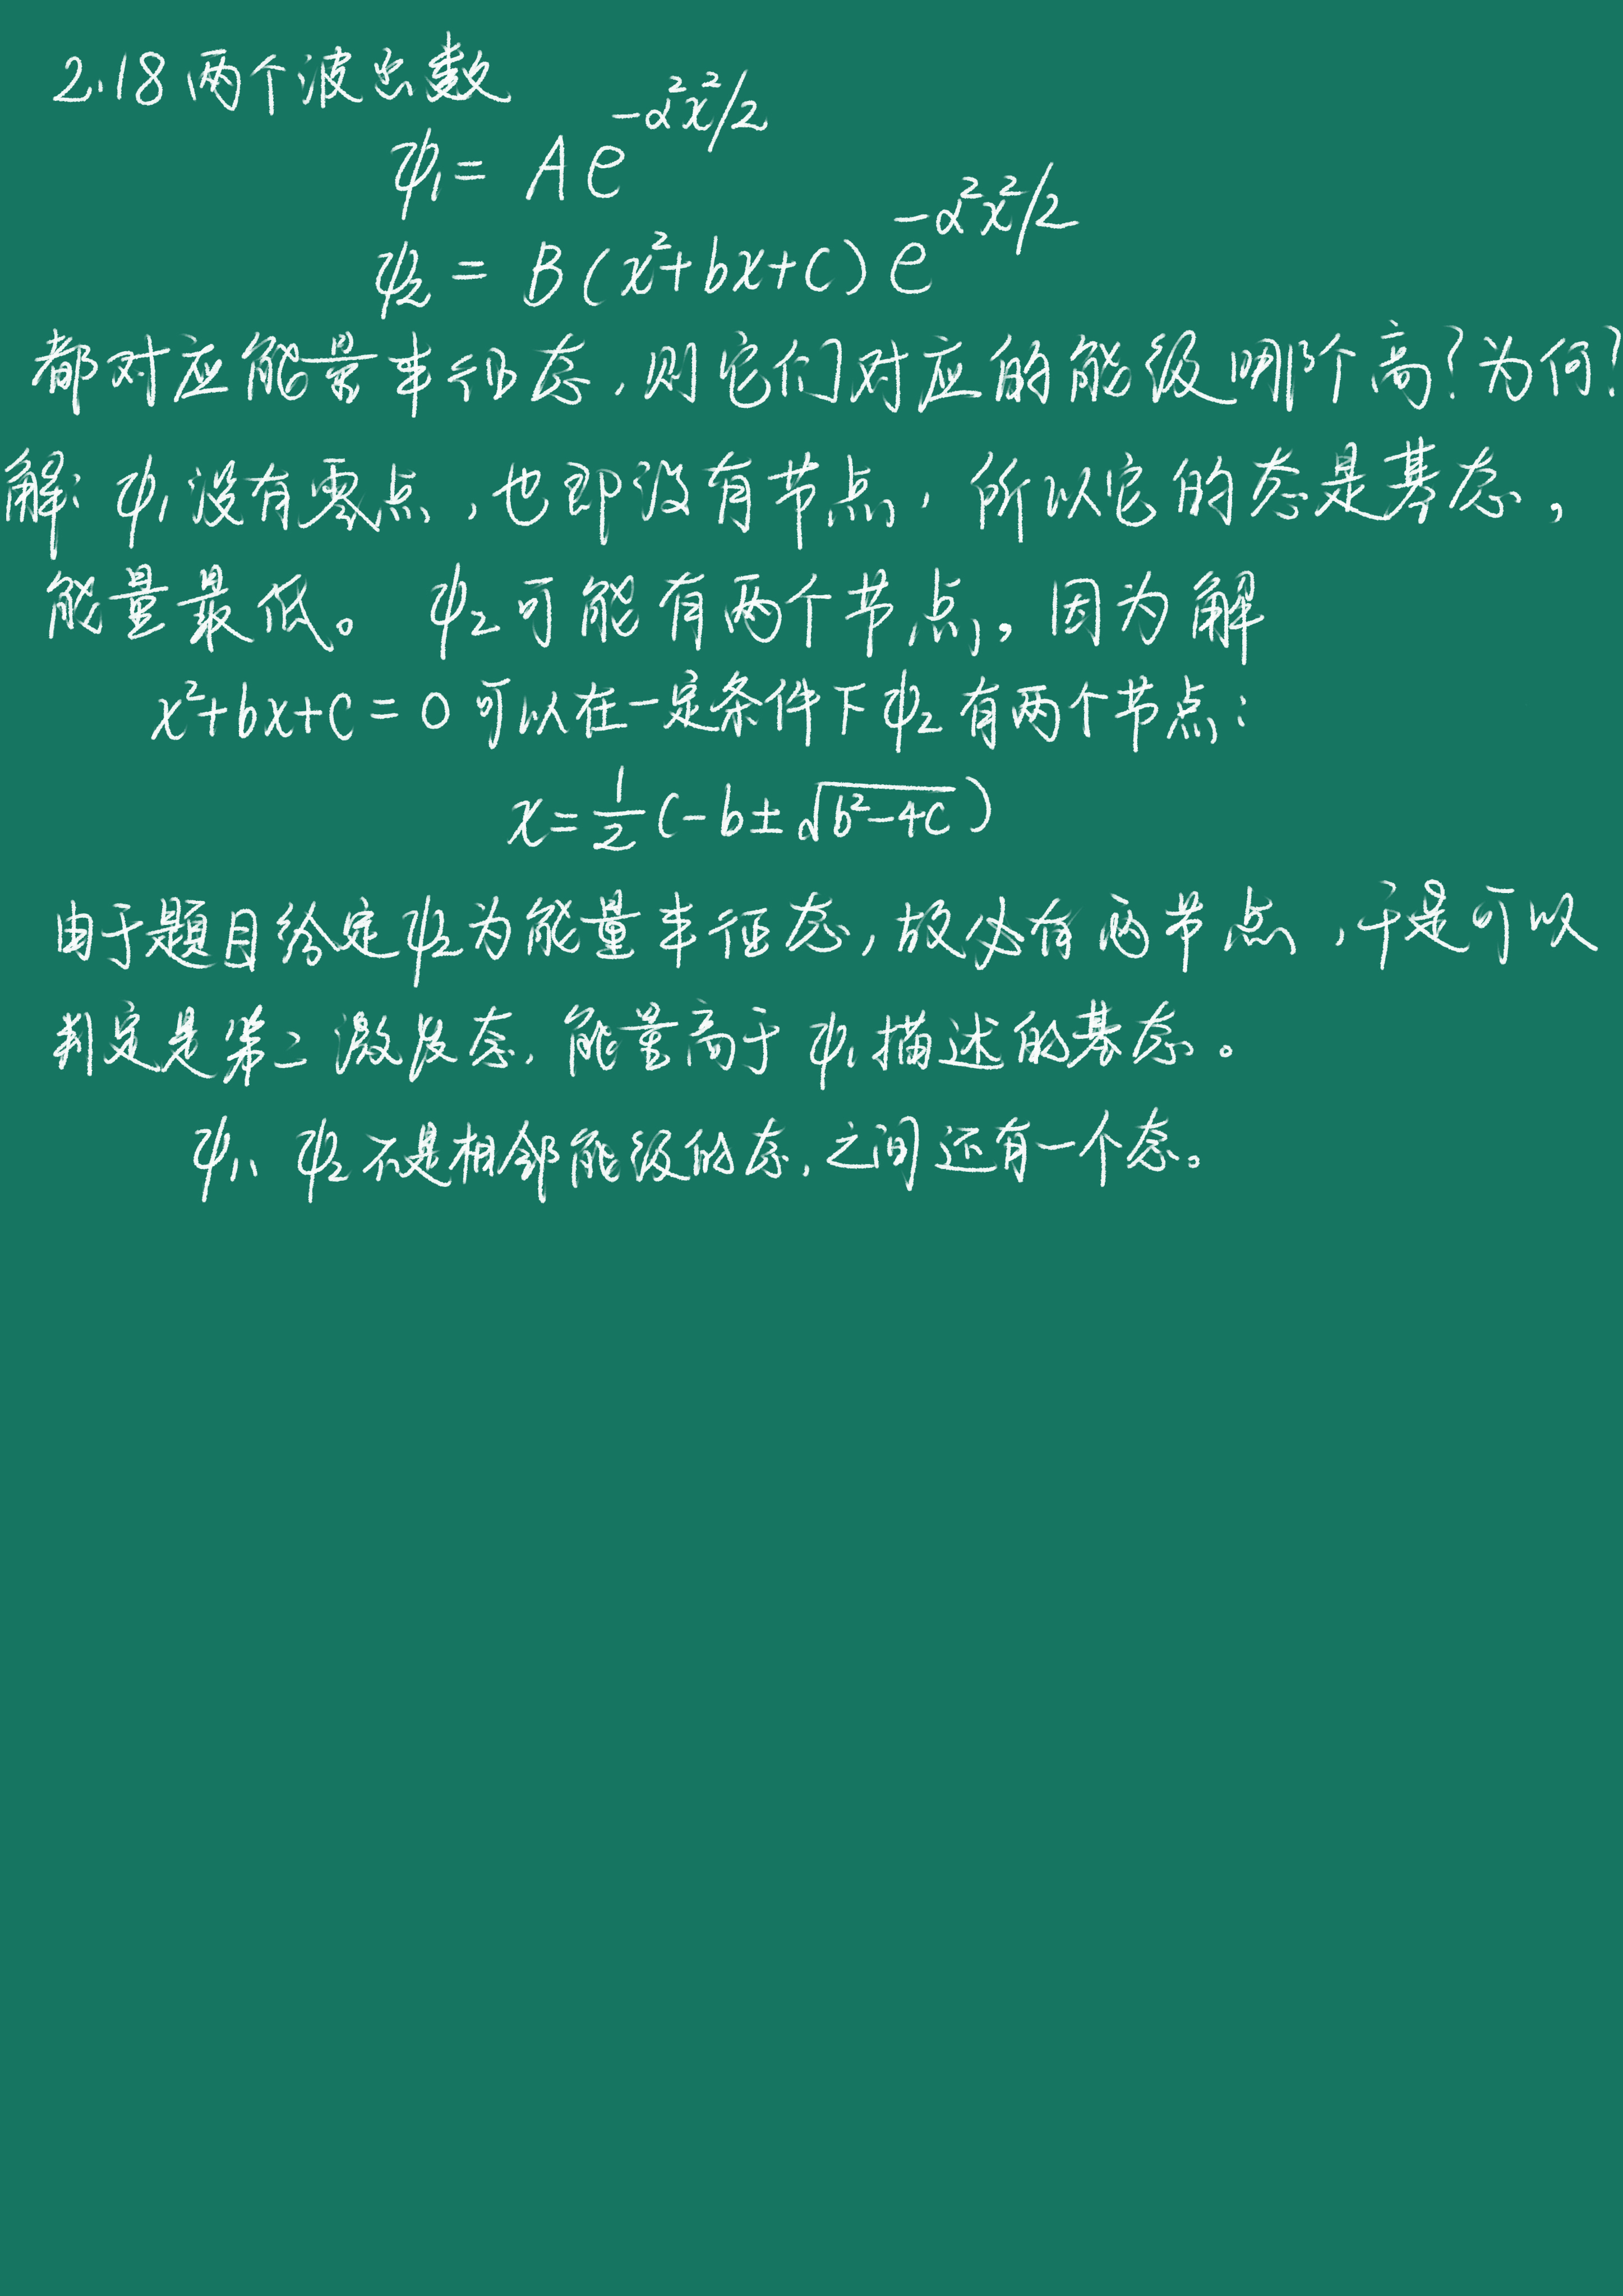 2.18 两个波函数
ψ₁ = A e^{-α²x²/2}
ψ₂ = B (x²+bx+c) e^{-α²x²/2}
都对应能量本征态,则它们对应的能级哪个高?为何?
解: ψ₁ 没有零点,也即没有节点,所以它的态是基态,
能量最低。 ψ₂ 可能有两个节点,因为解
x²+bx+c = 0 可以在一定条件下 ψ₂ 有两个节点:
x = \frac{1}{2} (-b ± \sqrt{b²-4c})
由于题目给定 ψ₂ 为能量本征态,故必有两节点,于是可以
判定是第二激发态,能量高于 ψ₁ 描述的基态。
ψ₁、ψ₂ 不是相邻能级的态,之间还有一个态。